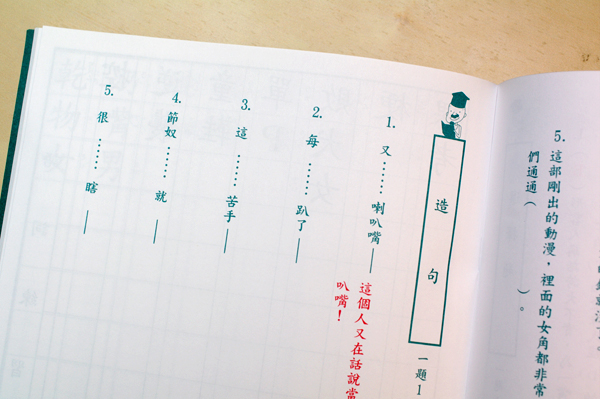 5. 這部剛出的動漫，裡面的女角都非常
們通通（　　　）。
造句
一題1
1. 又……喇叭嘴＿
這個人又在話說當
叭嘴！
2. 每……趴了＿
3. 這……苦手＿
4. 節奴……就＿
5. 很……瞎＿